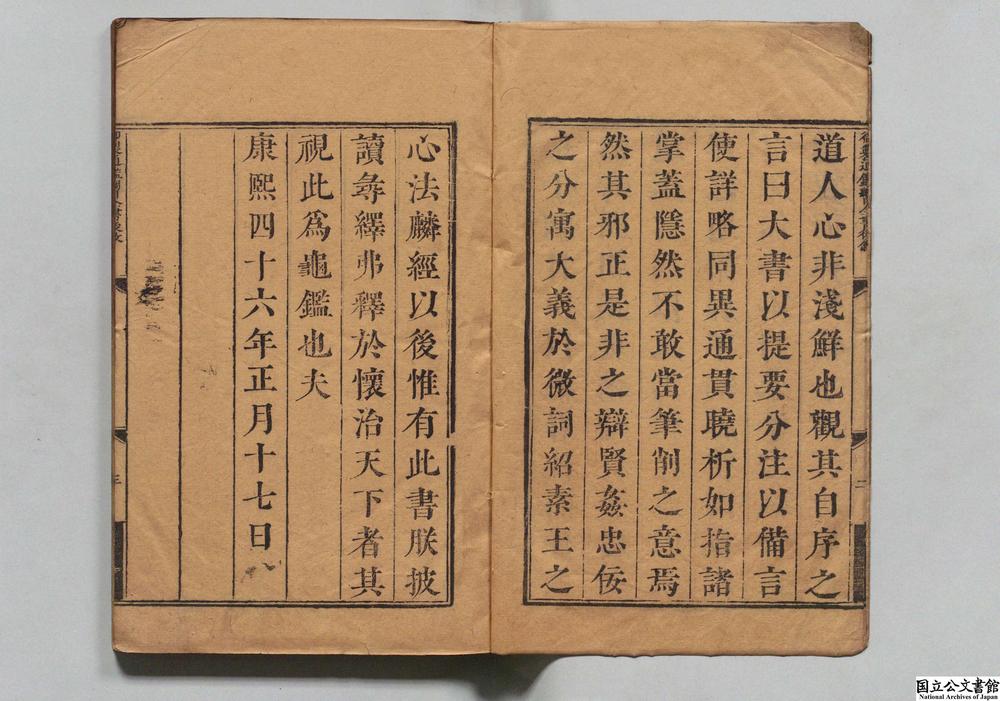 道人心非淺鮮也觀其自序之
言曰大書以提要分注以備言
使詳略同異通貫曉析如指諸
掌蓋隱然不敢當筆削之意焉
然其邪正是非之辯賢姦忠佞
之分寓大義於微詞紹素王之
二
心法麟經以後惟有此書朕披
讀彝繹弗釋於懷治天下者其
視此爲龜鑑也夫
康熙四十六年正月十七日
三
国立公文書館
National Archives of Japan